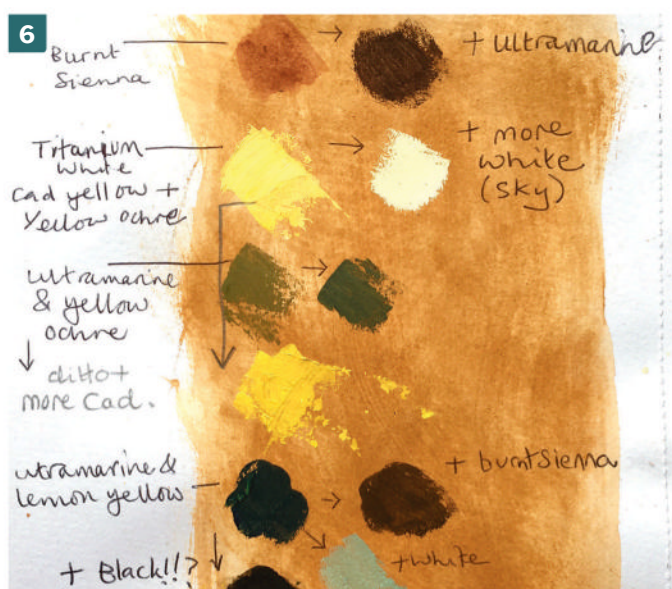 6
Burnt
Sienna
+ ultramarine
Titanium
White
Cad yellow +
Yellow ochre
+ more
white
(sky)
ultramarine
& yellow
ochre
ditto +
more Cad.
utramarine &
lemon yellow
+ burnt sienna
+ Black!!?
+ white